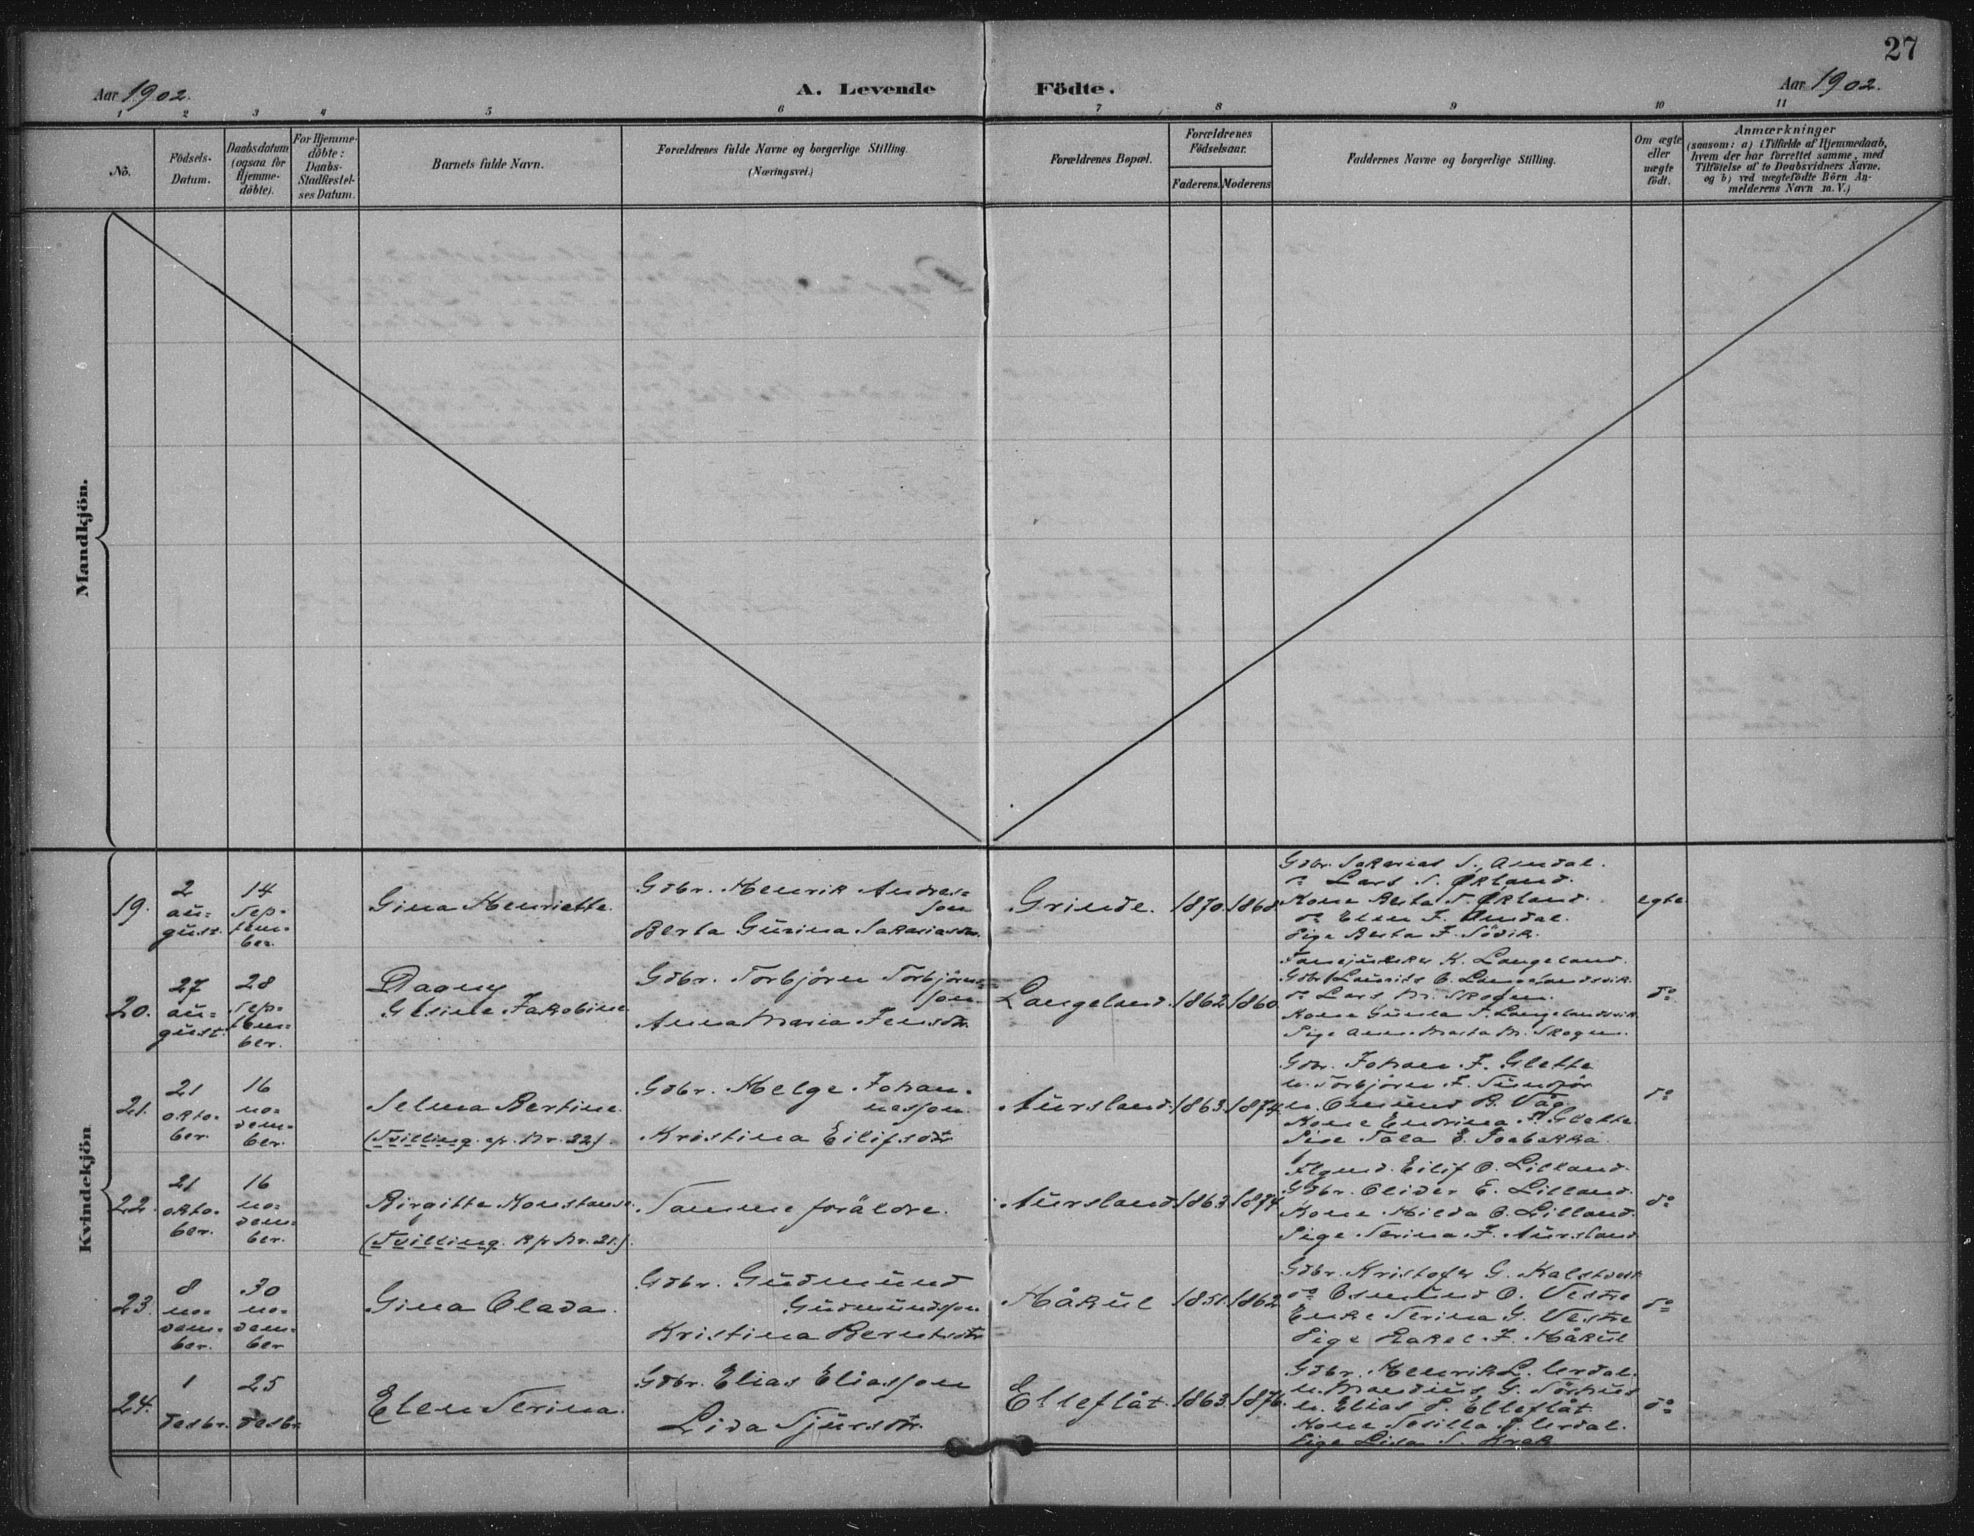 27
Aar 1902.
A. Levende
Födte.
Aar 1902.
1 2 3 4 5 6 7 8 9 10 11
No.
Födsels-
Datum.
Daabsdatum
(ogsaa for
Hjemme-
döbte).
For Hjemme-
döbte:
Daabs-
Stadfæstel-
ses Datum.
Barnets fulde Navn.
Forældrenes fulde Navne og borgerlige Stilling.
(Næringsvei.)
Forældrenes Bopæl.
Forældrenes
Födselsaar.
Faderens.
Moderens
Faddernes Navne og borgerlige Stilling.
Om ægte
eller
uægte
födt.
Anmærkninger
(saasom: a) i Tilfælde af Hjemmedaab,
hvem der har forrettet samme, med
Tilföielse af to Daabsvidners Navne,
og b) ved uægtefödte Börn An-
melderens Navn m. V.)
Mandkjön.
Kvindekjön
19.
2
au-
gust.
14
sep-
tem-
ber.
Gina Henriette.
Gdbr. Henrik Andreas-
son
Berta Gurina Sakariasdtr.
Grinde.
1870.
1868
Gdbr. Sakarias S. Amdal.
do Lars N. Økland.
Kone Berta N. Økland.
do Elen F. Amdal.
Pige Berta F. Sövik.
egte
20.
27
au-
gust.
28
sep-
tem-
ber.
Dagny
Gesine Jakobine
Gdbr. Torbjörn Torbjörn-
son.
Anna Maria Jensdtr.
Langeland.
1862
1860
K. Langeland.
Gdbr. Laurits O. Langelandsvik
do Lars M. Skogen.
Kone Gunla T. Langelandsvik
Pige Anne Marta M. Skogen.
do
21.
21
okto-
ber.
16
no-
vem-
ber.
Selma Bertine.
(Tvilling. cfr. Nr. 22).
Gdbr. Helge Johan-
nesson.
Kristina Eilifsdtr
Aursland.
1863.
1874.
Gdbr. Johan F. Glette
u. Torbjörn F. Sundför
u. Omund B. Våg.
Kone Endrina H. Glette
Pige Tala E. Joabakka
do
22.
21
okto-
ber.
16
no-
vem-
ber.
Birgitte Konstanse.
(Tvilling. Kfr Nr. 21.).
Samme foräldre.
Aursland.
1863.
1874.
Eilif O. Lilland.
Gdbr. Olider E. Lilland.
Kone Hilda O. Lilland.
Pige Serina F. Aursland
do
23.
8
no-
vem-
ber.
30
no-
vem-
ber
Gina Olava.
Gdbr. Gudmund
Gudmundsson
Kristina Berntsdtr
Håkul
1851.
1862
Gdbr. Kristofer G. Kalstveit
do Osmund O. Vestre
Enke Serina G. Vestre
Pige Rakel F. Håkul
do
24.
1
desbr.
25
desbr.
Elen Serina.
Gdbr. Elias Eliasson
Lida Sjursdtr.
Elleflåt.
1863.
1876.
Gdbr. Henrik L. Urdal.
u. Mandius G. Sörhus
u. Elias P. Elleflåt
Kone Sesilla P. Urdal.
Pige Lisa S. Krak
do